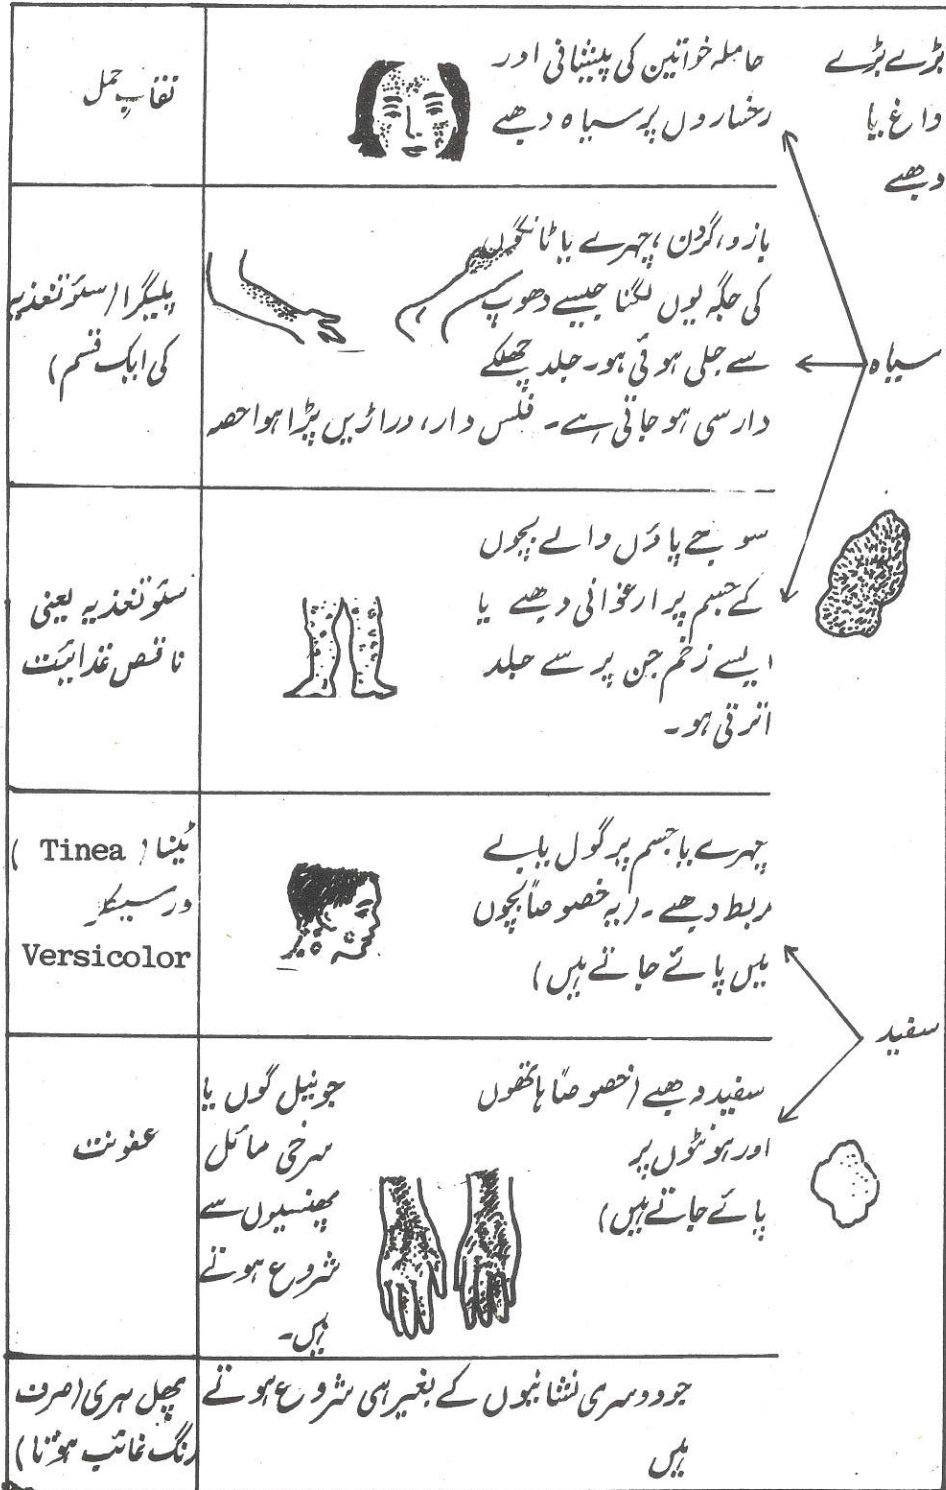 بڑے بڑے
داغ یا
دھبے
حاملہ خواتین کی پیشانی اور
رخساروں پر سیاہ دھبے
نقابِ حمل
سیاہ
بازو، گردن، چہرے یا ٹانگوں
کی جگہ یوں لگنا جیسے دھوپ
سے جلی ہوئی ہو۔ جلد چھلکے
دار سی ہو جاتی ہے۔ فلس دار، دراڑیں پڑا ہوا حصہ
پلیگرا (سئوتغذیہ
کی ایک قسم)
سوجے پاؤں والے بچوں
کے جسم پر ارغوانی دھبے یا
ایسے زخم جن پر سے جلد
اترتی ہو۔
سئوتغذیہ یعنی
ناقص غذائیت
سفید
چہرے یا جسم پر گول یا بے
ربط دھبے۔ (یہ خصوصاً بچوں
میں پائے جاتے ہیں)
ٹینیا (Tinea)
ورسیکلر
Versicolor
سفید دھبے (خصوصاً ہاتھوں
اور ہونٹوں پر
پائے جاتے ہیں)
جو نیل گوں یا
سرخی مائل
پھنسیوں سے
شروع ہوتے
ہیں۔
عفونت
جو دوسری نشانیوں کے بغیر ہی شروع ہوتے
ہیں
پھل بہری (صرف
رنگ غائب ہونا)